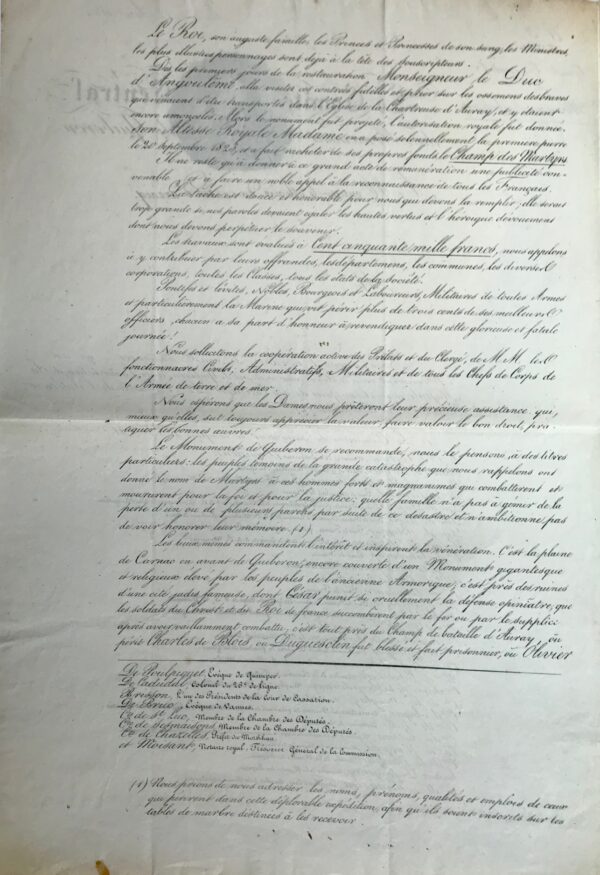 Le Roi, son auguste famille, les Princes et Princesses de son sang, les Ministres,
les plus illustres personnages sont déjà à la tête des souscripteurs.
Dès les premiers jours de la restauration Monseigneur le Duc
d'Angoulême alla visiter ces contrées fidèles et prier sur les ossemens des braves
que venaient d'être transportés dans l'Eglise de la Chartreuse d'Auray, et y étaient
encore amoncelés. Alors le monument fut projeté, l'autorisation royale fut donnée.
Son Altesse Royale Madame en a posé solennellement la première pierre
le 20 septembre 1823, et a fait racheter de ses propres fonds le Champ des Martyrs
Il ne reste qu'à donner à ce grand acte de rémunération une publicité con-
venable, et à faire un noble appel à la reconnaissance de tous les Français.
La tâche est douce et honorable pour nous qui devons la remplir; elle serait
trop grande si nos paroles devaient égaler les hautes vertus et l'héroïque dévouement
dont nous devons perpétuer le souvenir.
Les travaux sont évalués à Cent cinquante mille francs, nous appelons
à y contribuer par leurs offrandes, les départemens, les communes, les diverses
corporations, toutes les Classes, tous les états de la société.
Pontifes et Lévites, Nobles, Bourgeois et Laboureurs, Militaires de toutes Armes
et particulièrement la Marine qui vit périr plus de trois cents de ses meilleurs
officiers, chacun a sa part d'honneur à revendiquer dans cette glorieuse et fatale
journée.
Nous sollicitons la coopération active des Prélats et du Clergé, de MM. les
fonctionnaires Civils, Administratifs, Militaires et de tous les Chefs de Corps de
l'Armée de terre et de mer.
Nous espérons que les Dames nous prêteront leur précieuse assistance: qui,
mieux qu'elles, sut toujours apprécier la valeur, faire valoir le bon droit, pra-
tiquer les bonnes œuvres.
Le Monument de Quiberon se recommande, nous le pensons, à des titres
particuliers: les peuples témoins de la grande catastrophe que nous rappelons ont
donné le nom de Martyrs à ces hommes forts et magnanimes qui combattirent et
moururent pour la foi et pour la justice; quelle famille n'a pas à gémir de la
perte d'un ou de plusieurs parens par suite de ce désastre et n'ambitionne pas
de voir honorer leur mémoire. (1)
Les lieux mêmes commandent l'intérêt et inspirent la vénération. C'est la plaine
de Carnac en avant de Quiberon, encore couverte d'un Monument gigantesque
et religieux élevé par les peuples de l'ancienne Armorique; c'est près des ruines
d'une cité jadis fameuse, dont César punit si cruellement la défense opiniâtre, que
les soldats du Christ et du Roi de france succombèrent par le fer ou par le supplice
après avoir vaillamment combattu; c'est tout près du Champ de bataille d'Auray, où
périt Charles de Blois, où Duguesclin fut blessé et fait prisonnier, où Olivier
De Poulpiquet, Evêque de Quimper.
De Cadudal, Colonel du 26e de ligne.
Bresson, L'un des Présidents de la Cour de Cassation.
De Bruc, Evêque de Vannes.
Cte de St Luc, Membre de la Chambre des Députés.
Cte de Sesmaisons, Membre de la Chambre des Députés.
Cte de Chazelles, Préfet du Morbihan.
et Moisant, Notaire royal, Trésorier Général de la Commission.
(1) Nous prions de nous adresser les noms, prénoms, qualités et emplois de ceux
qui périrent dans cette déplorable expédition, afin qu'ils soient inscrits sur les
tables de marbre destinées à les recevoir.